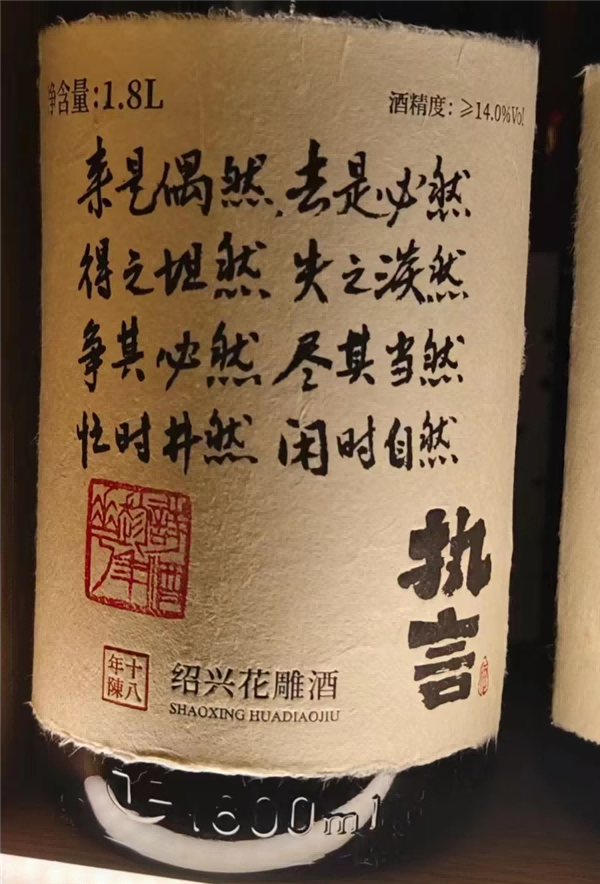 净含量:1.8L
酒精度:≥14.0%Vol
来是偶然,去是必然
得之坦然 失之淡然
争其必然 尽其当然
忙时井然 闲时自然
诗酒趁年华
执言
十八年陳
绍兴花雕酒
SHAOXING HUADIAOJIU
1800ml